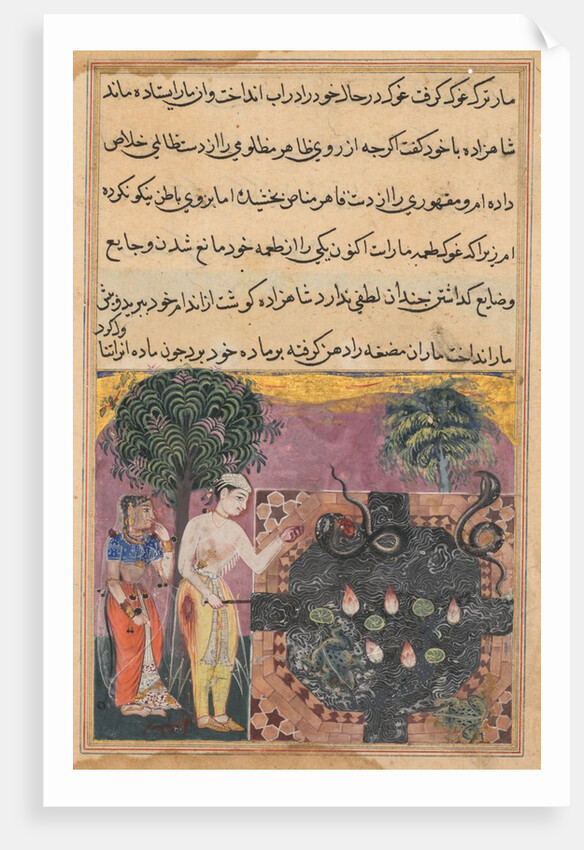 مار ترک غوک گرفت غوک در حال خود را در آب انداخت و آن مار ایستاده ماند
شاهزاده با خود گفت اکرجه از روی ظاهر مظلومی را از دست ظالمی خلاص
داده ام و مقهوری را از دست قاهر مناص بخشیده اما بروی باطن نیکو نکرده
ام زیرا که غوک طعمه مار است اکنون یکی را از طعمه خود مانع شدن و جایع
و ضایع کذاشتن جندان لطفی ندارد شاهزاده کوشت از اندام خود ببرید و پیش
مار انداخت ماران مضغه را در دهن کرفته بر ماده خود برد جون ماده انرا